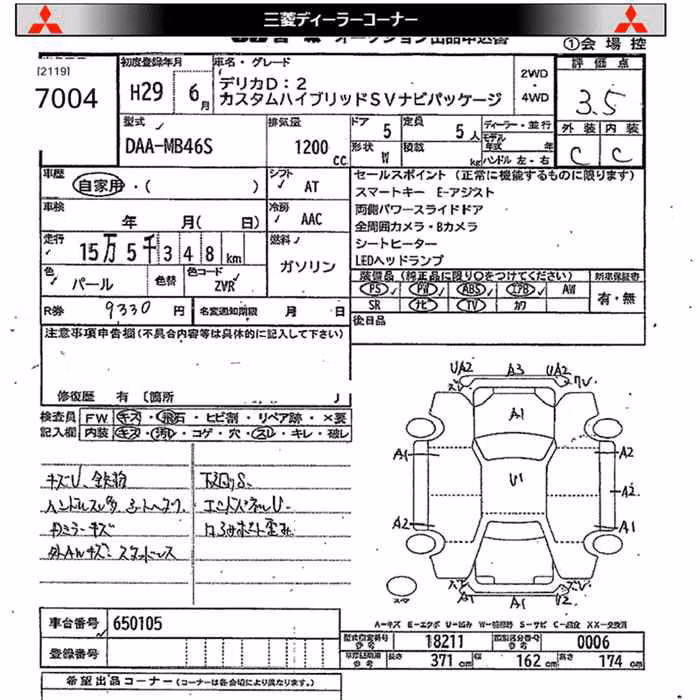 三菱ディーラーコーナー
オークション出品申込書
①会場控
[2119]
7004
初度登録年月
H29 6月
車名・グレード
デリカD:2
カスタムハイブリッドSVナビパッケージ
2WD
・
4WD
評価点
3.5
外装 内装
C C
型式
DAA-MB46S
排気量
1200 cc
ドア 5
定員 5人
形状 W
積載 kg
ディーラー・並行
モデル年式 年
ハンドル 左・右
車歴
自家用・( )
シフト
AT
車検
年 月( 日)
冷房
AAC
走行
15万5千348km
燃料
ガソリン
色
パール
色替
色コード
ZVR
R券 9330円
名変通知期限 月 日
セールスポイント(正常に機能するものに限ります)
スマートキー E-アジスト
両側パワースライドドア
全周囲カメラ・Bカメラ
シートヒーター
LEDヘッドランプ
装備品(純正品に限り○をつけてください)
新車保証書
PS PW ABS エアB AW
SR ナビ TV カワ
有・無
後日品
注意事項申告欄(不具合内容等は具体的に記入して下さい)
修復歴 有 〔箇所 〕
検査員記入欄
FW キズ・飛石・ヒビ割・リペア跡・×要
内装 キズ・汚れ・コゲ・穴・スレ・キレ・破レ
キズU、鉄粉
下回りS
エンドパネルU
ロアサポート歪み
外AWキズ、スタッドレス
UA2 A3 UA2
A1
A1 A2
U1
A2
A2 A1
A1 A1 U2
スペア
A-キズ E-エクボ U-凹み W-補修跡 S-サビ C-腐食 XX-交換済
車台番号 650105
登録番号
型式指定番号 参考 18211
類別区分番号 参考 0006
長さ 371cm 幅 162cm 高さ 174cm
希望出品コーナー(コーナーは各会場により異なります。)